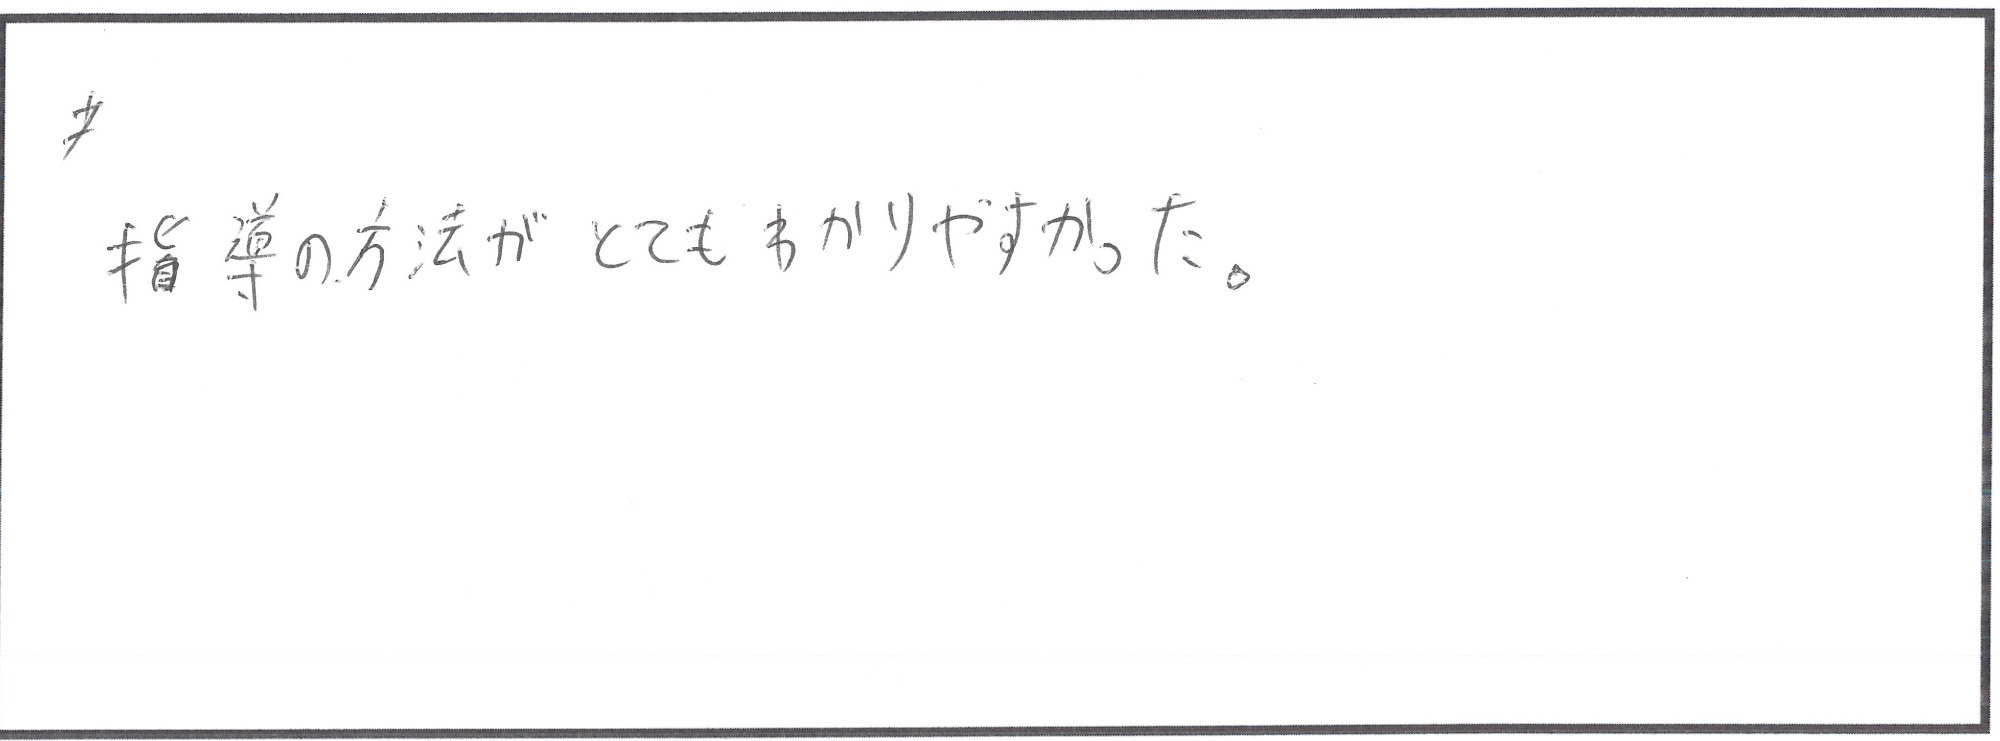 指導の方法がとてもわかりやすかった。